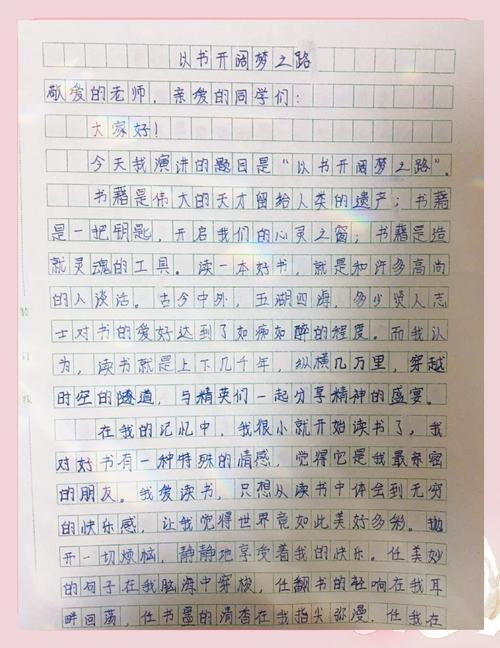 以书开阔梦之路
敬爱的老师，亲爱的同学们：
大家好！
今天我演讲的题目是“以书开阔梦之路”。
书籍是伟大的天才留给人类的遗产；书籍
是一把钥匙，开启我们的心灵之窗；书籍是造
就灵魂的工具。读一本好书，就是和许多高尚
的人谈话。古今中外，五湖四海，多少贤人志
士对书的爱好达到了如痴如醉的程度。而我认
为，读书就是上下几千年，纵横几万里，穿越
时空的隧道，与精英们一起分享精神的盛宴。
在我的记忆中，我很小就开始读书了，我
对好书有一种特殊的情感，觉得它是我最亲密
的朋友。我爱读书，只想从读书中体会到无穷
的快乐感，让我觉得世界竟如此美好多彩。抛
开一切烦恼，静静地享受着我的快乐。任美妙
的句子在我脑海中穿梭，任翻书的轻响在我耳
畔回荡，任书墨的清香在我指尖弥漫，任我在
装
订
线